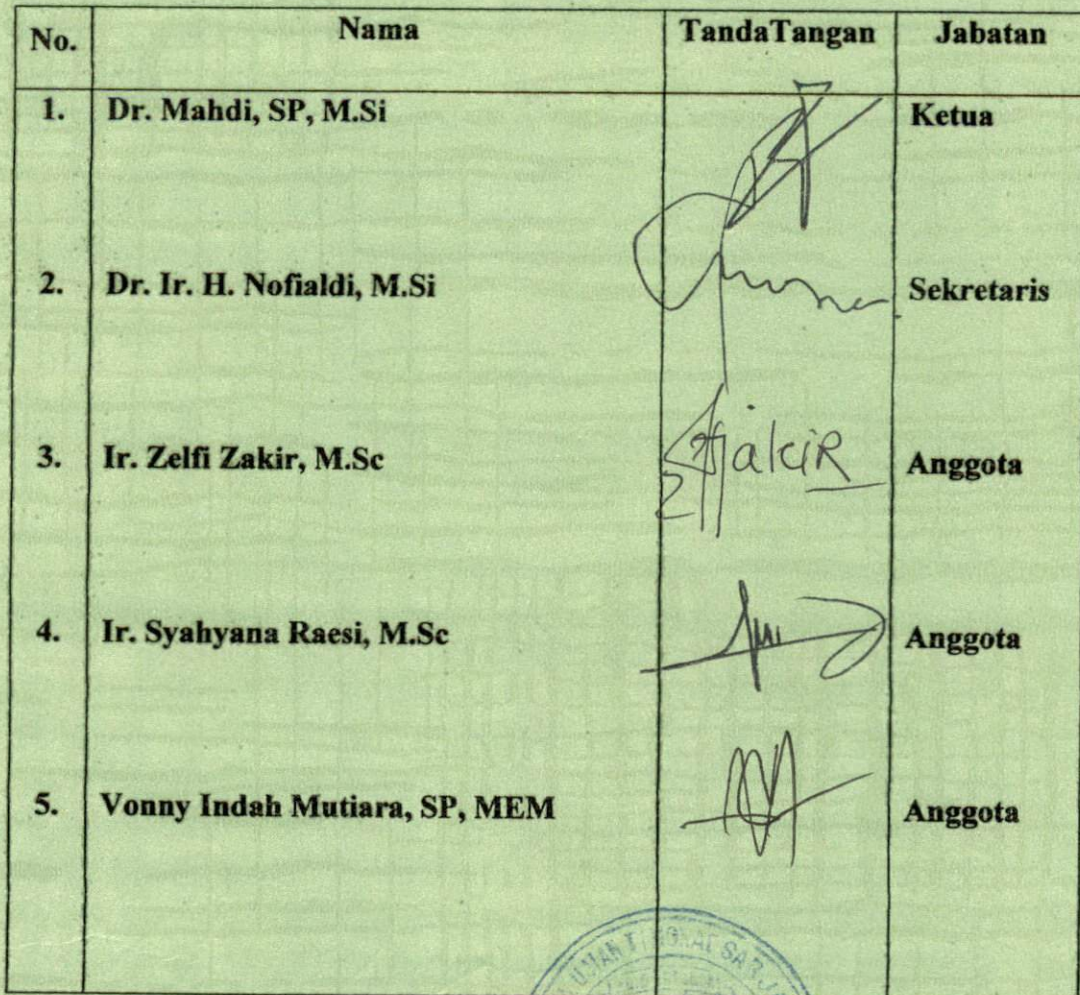 No. Nama TandaTangan Jabatan
1. Dr. Mahdi, SP, M.Si Ketua
2. Dr. Ir. H. Nofialdi, M.Si Sekretaris
3. Ir. Zelfi Zakir, M.Sc Anggota
4. Ir. Syahyana Raesi, M.Sc Anggota
5. Vonny Indah Mutiara, SP, MEM Anggota